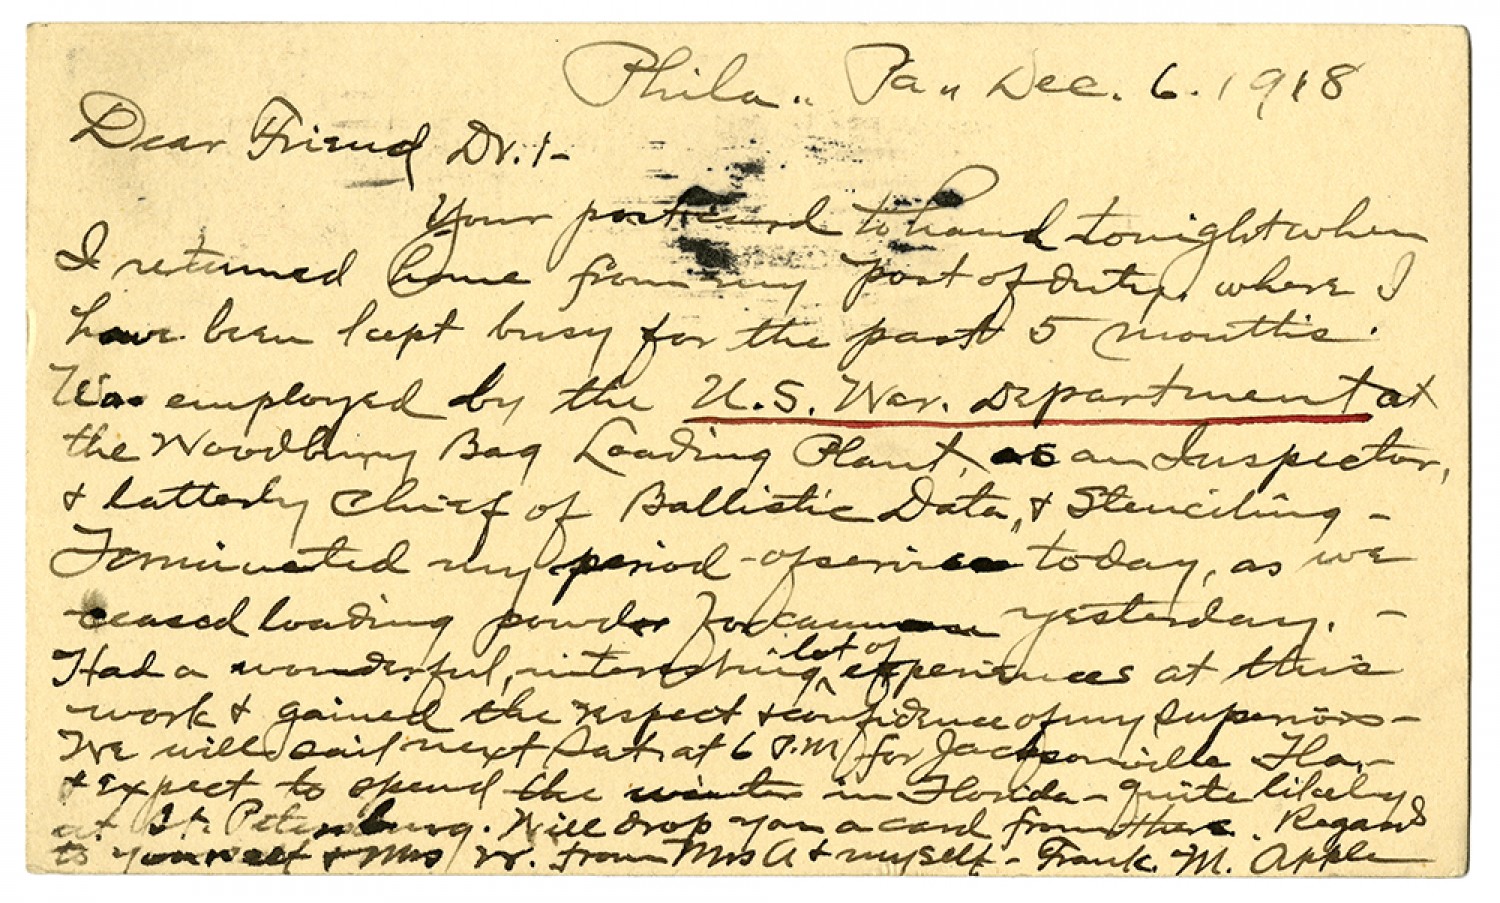 Phila.. Pa,, Dec. 6. 1918
Dear Friend Dr. :-
Your postcard to hand tonight when
I returned home from my post of duty, where I
have been kept busy for the past 5 months.
Was employed by the U.S. War. Department at
the Woodbury Bag Loading Plant, as an Inspector,
& latterly Chief of Ballistic Data, & Stenciling -
Terminated my period - of service today, as we
ceased loading powder for cannon yesterday. -
Had a wonderful, interesting lot of experiences at this
work & gained the respect & confidence of my superiors -
We will sail next Sat. at 6 P.M. for Jacksonville Fla. -
& expect to spend the winter in Florida - quite likely
at St. Petersburg. Will drop you a card from there. Regards
to yourself & Mrs W. from Mrs A & myself - Frank. M. Apple